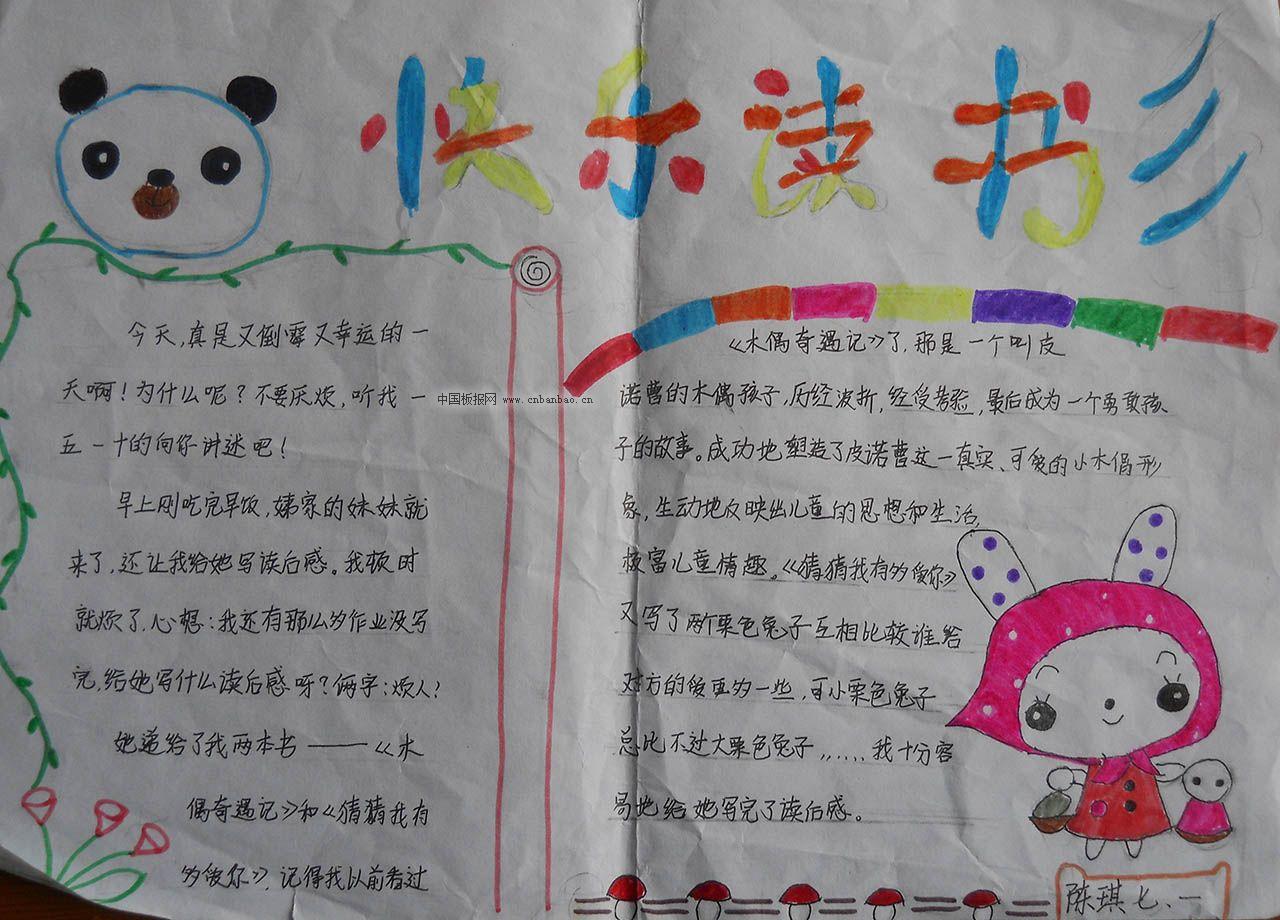 快乐读书
今天,真是又倒霉又幸运的一
天啊!为什么呢?不要厌烦,听我一
五一十的向你讲述吧!
早上刚吃完早饭,姨家的妹妹就
来了,还让我给她写读后感。我顿时
就烦了,心想:我还有那么多作业没写
完,给她写什么读后感呀?俩字:烦人?
她递给了我两本书——《木
偶奇遇记》和《猜猜我有
多爱你》,记得我以前看过
中国板报网 www.cnbanbao.cn
《木偶奇遇记》了,那是一个叫皮
诺曹的木偶孩子,历经波折,经受考验,最后成为一个勇敢孩
子的故事。成功地塑造了皮诺曹这一真实、可爱的小木偶形
象,生动地反映出儿童的思想和生活,
极富儿童情趣。《猜猜我有多爱你》
又写了两个栗色兔子互相比较谁给
对方的爱更多一些,可小栗色兔子
总比不过大栗色兔子,,.....我十分容
易地给她写完了读后感。
陈琪七.一